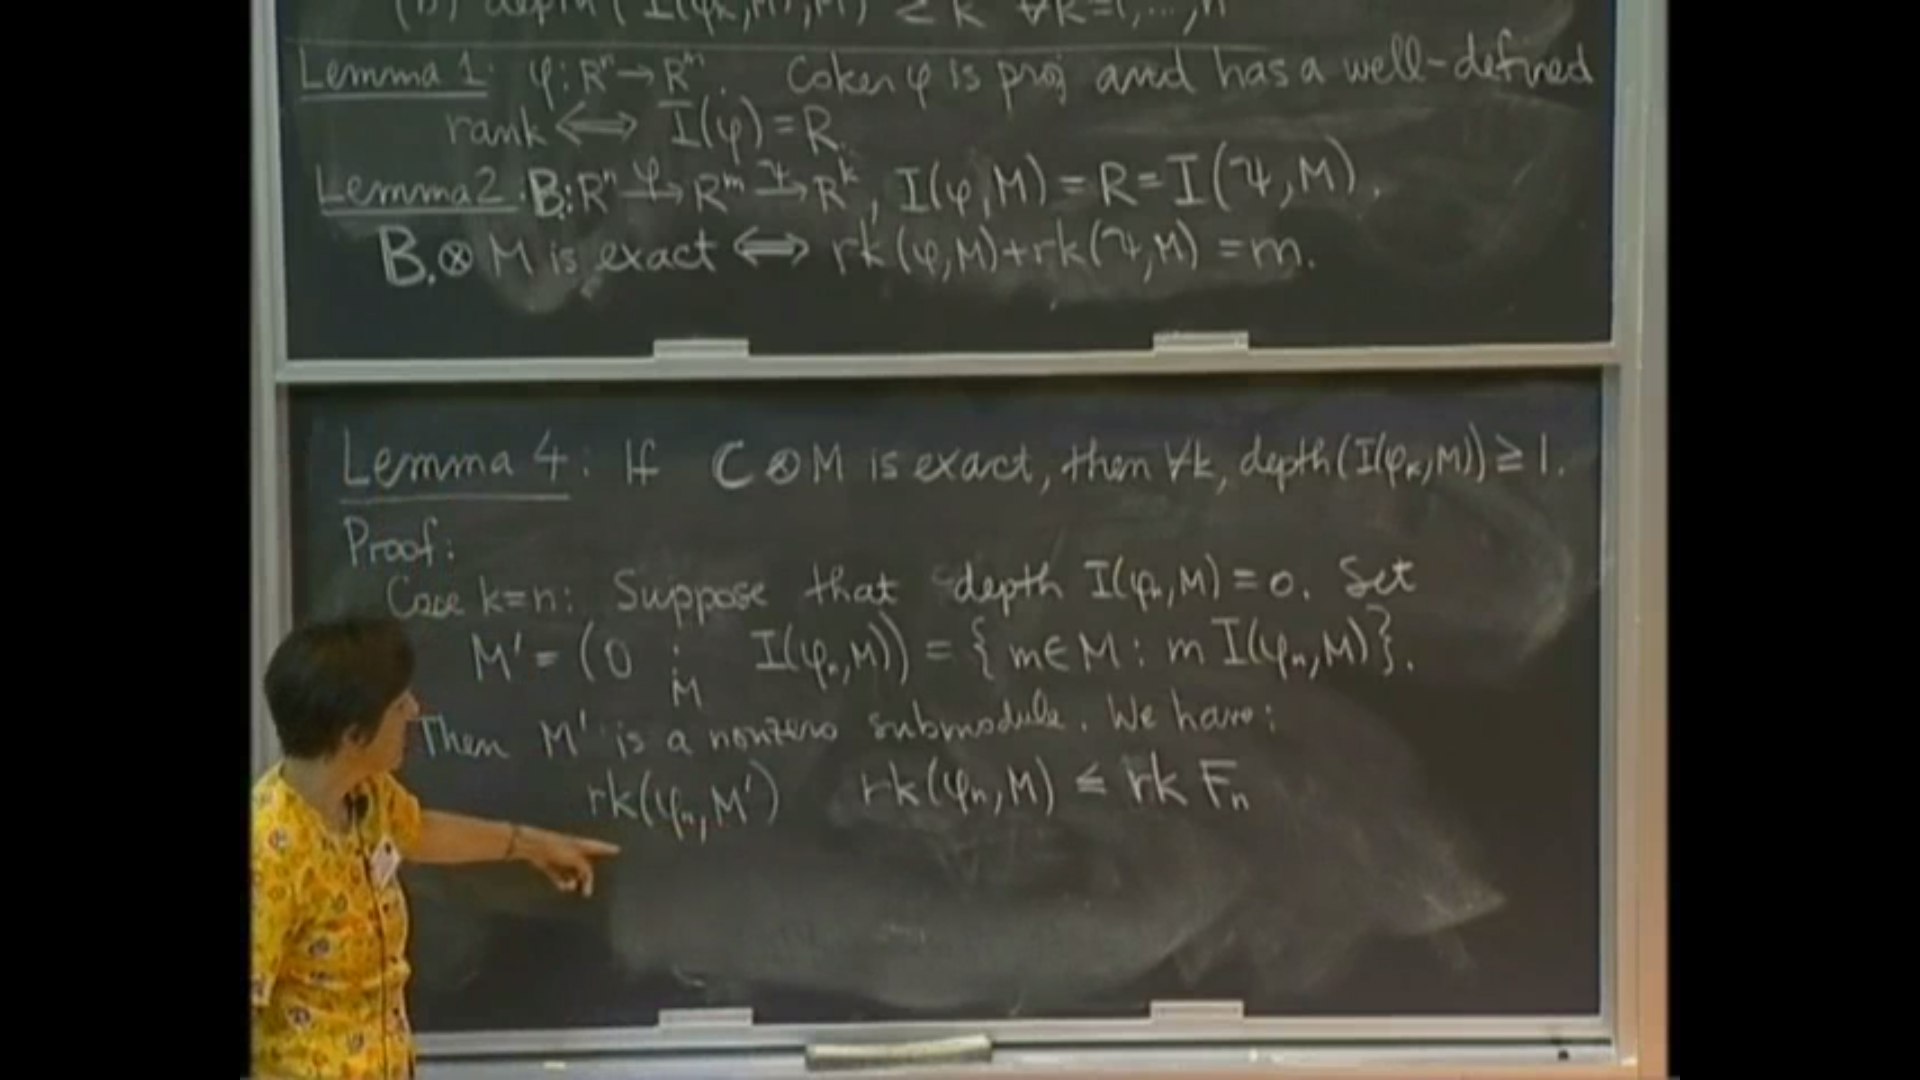 (b) depth(I(φₖ,M),M) ≥ k ∀k=1,...,n
Lemma 1: φ:Rⁿ→Rᵐ. Coker φ is proj and has a well-defined
rank ⟺ I(φ)=R.
Lemma 2. B.:Rⁿ –φ→ Rᵐ –Ψ→ Rᵏ, I(φ,M)=R=I(Ψ,M).
B.⊗M is exact ⟺ rk(φ,M)+rk(Ψ,M)=m.
Lemma 4: If C⊗M is exact, then ∀k, depth(I(φₖ,M))≥1.
Proof:
Case k=n: Suppose that depth I(φₙ,M)=0. Set
M'=(0 :_M I(φₙ,M))={m∈M: m I(φₙ,M)}.
Then M' is a nonzero submodule. We have:
rk(φₙ,M') rk(φₙ,M) ≤ rk Fₙ